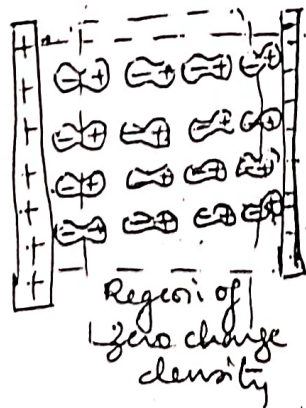 Region of
zero charge
density